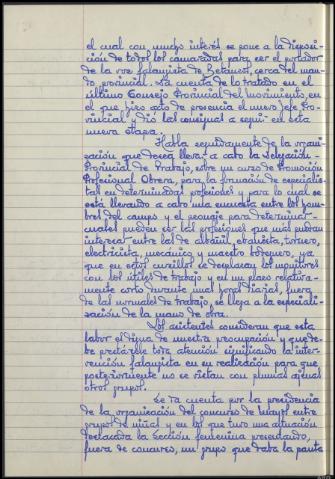 el cual con mucho interés se pone a la disposi-
ción de todos los camaradas para ser el portador
de la voz falangista de Betanzos, cerca del man-
do provincial. Da cuenta de lo tratado en el
último Consejo Provincial del Movimiento, en
el que hizo acto de presencia el nuevo Jefe Pro-
vincial y dió las consignas a seguir en esta
nueva etapa.
Habla seguidamente de la organi-
zación que desea llevar a cabo la Delegación
Provincial de Trabajo, sobre un curso de Promoción
Profesional Obrera, para la formación de especialis-
tas en determinadas profesiones y para lo cual se
está llevando a cabo una encuesta entre los hom-
bres del campo y el peonaje para determinar
cuales pueden ser las profesiones que más pudieran
interesar entre las de albañil, ebanista, tornero,
electricista, mecánico y maestro bodeguero, ya
que en estos cursillos se desplazan los monitores
con los útiles de trabajo y en un plazo relativa-
mente corto durante unas horas diarias, fuera
de las normales de trabajo, se llega a la especiali-
zación de la mano de obra.
Los asistentes consideran que esta
labor es digna de nuestra preocupación y que de-
be prestársele toda atención significando la inter-
vención falangista en su realización para que
posteriormente no se vistan con plumas ajenas
otros grupos.
Se da cuenta por la presidencia
de la organización del concurso de mayos entre
grupos de niñas y en los que tuvo una actuación
destacada la Sección Femenina presentando,
fuera de concurso, un grupo que daba la pauta